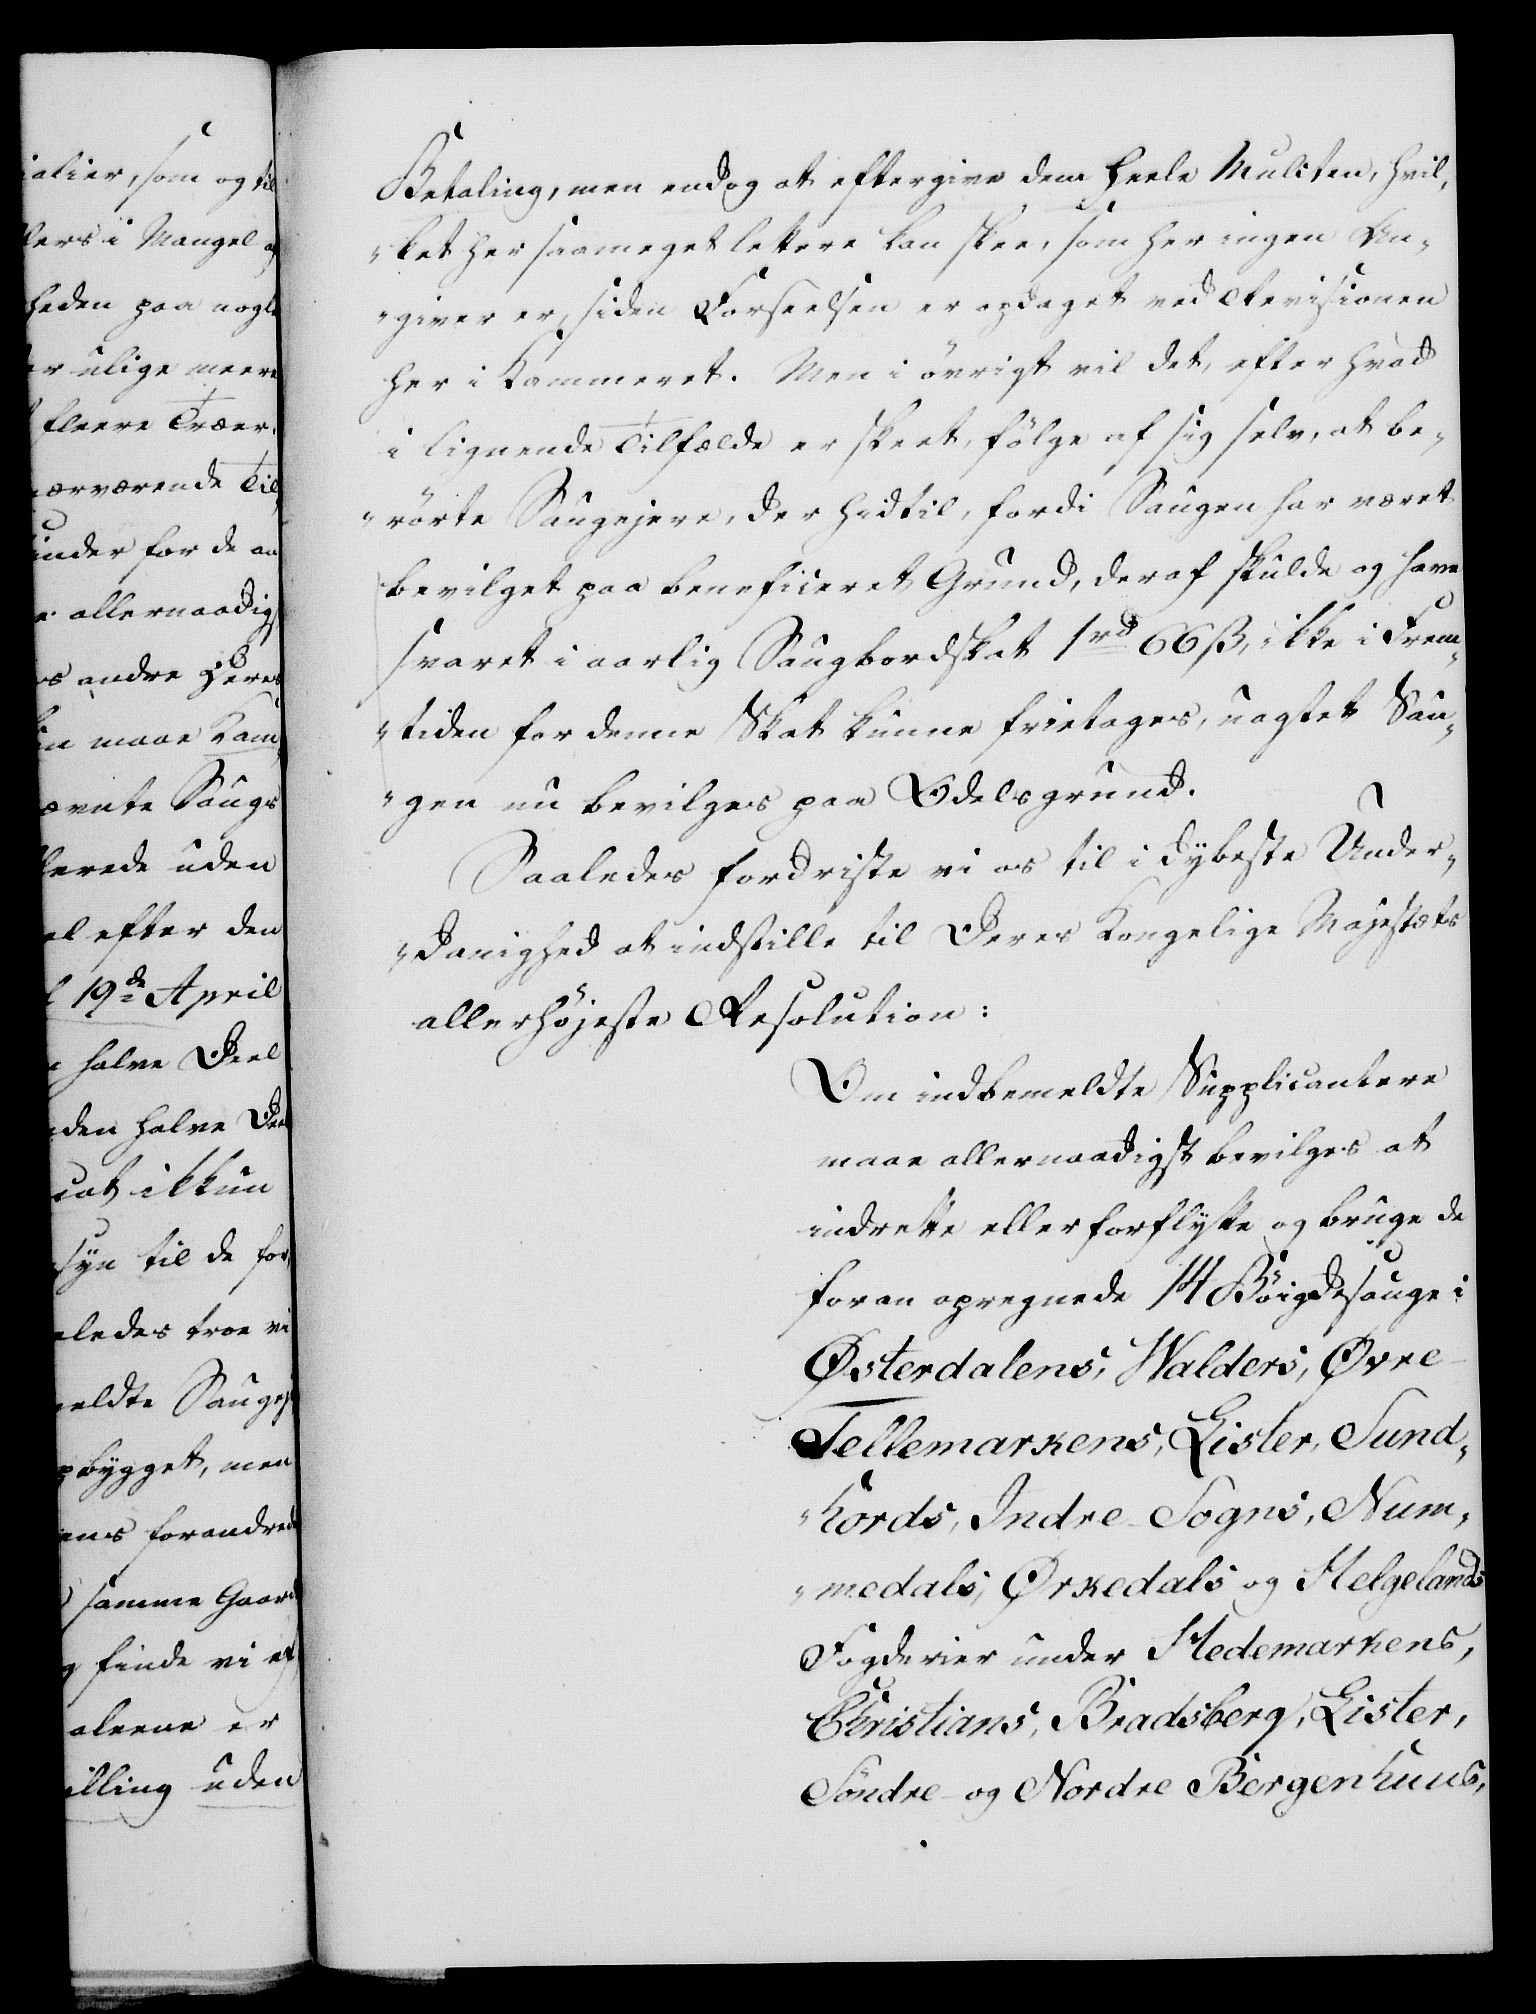 ialier, som og til
lers i Mangel af
heden paa nogle
er ulige meere
fleere Træer.
nærværende Til,
under for de an
e allernaadigst
os andre Deres
in maae Kam
ævnte Saugs
erede uden
el efter den
19de April
halve Deel
den halve Deel
cat ikkun
syn til de for,
aledes troe vi
meldte Saugeje
bygget, men
ens forandrede
samme Gaard
finde vi af
aleene er
illing uden
Betaling, men endog at eftergive dem heele Mulcten, hvil,
"ket her saameget lettere kan skee, som her ingen An,
"giver er, siden Forseelsen er opdaget ved Revisionen
her i Kammeret. Men i övrigt vil det, efter hvad
i lignende Tilfælde er skeet, fölge af sig selv, at be,
"rörte Saugejere, der hidtil, fordi Saugen har været
bevilget paa beneficeret Grund, deraf skulde og have
svaret i aarlig Saugbordskat 1rd 66 ß, ikke i Frem,
"tiden for denne Skat kunne frietages, uagtet Sau,
"gen nu bevilges paa Odelsgrund.
Saaledes fordriste vi os til i dybeste Under,
"danighed at indstille til Deres Kongelige Majestæts
allerhöjeste Resolution:
Om indbemeldte Supplicantere
maae allernaadigst bevilges at
indrette eller forflytte og bruge de
foran opregnede 14 Böigdesauge i
Østerdalens, Walders, Øvre-
Tellemarkens, Lister, Sund,
"hords, Indre-Sogns, Num,
"medals, Ørkedals og Helgelands
Fogderier under Hedemarkens,
Christians, Bradsberg, Lister,
Söndre- og Nordre Bergenhuus,